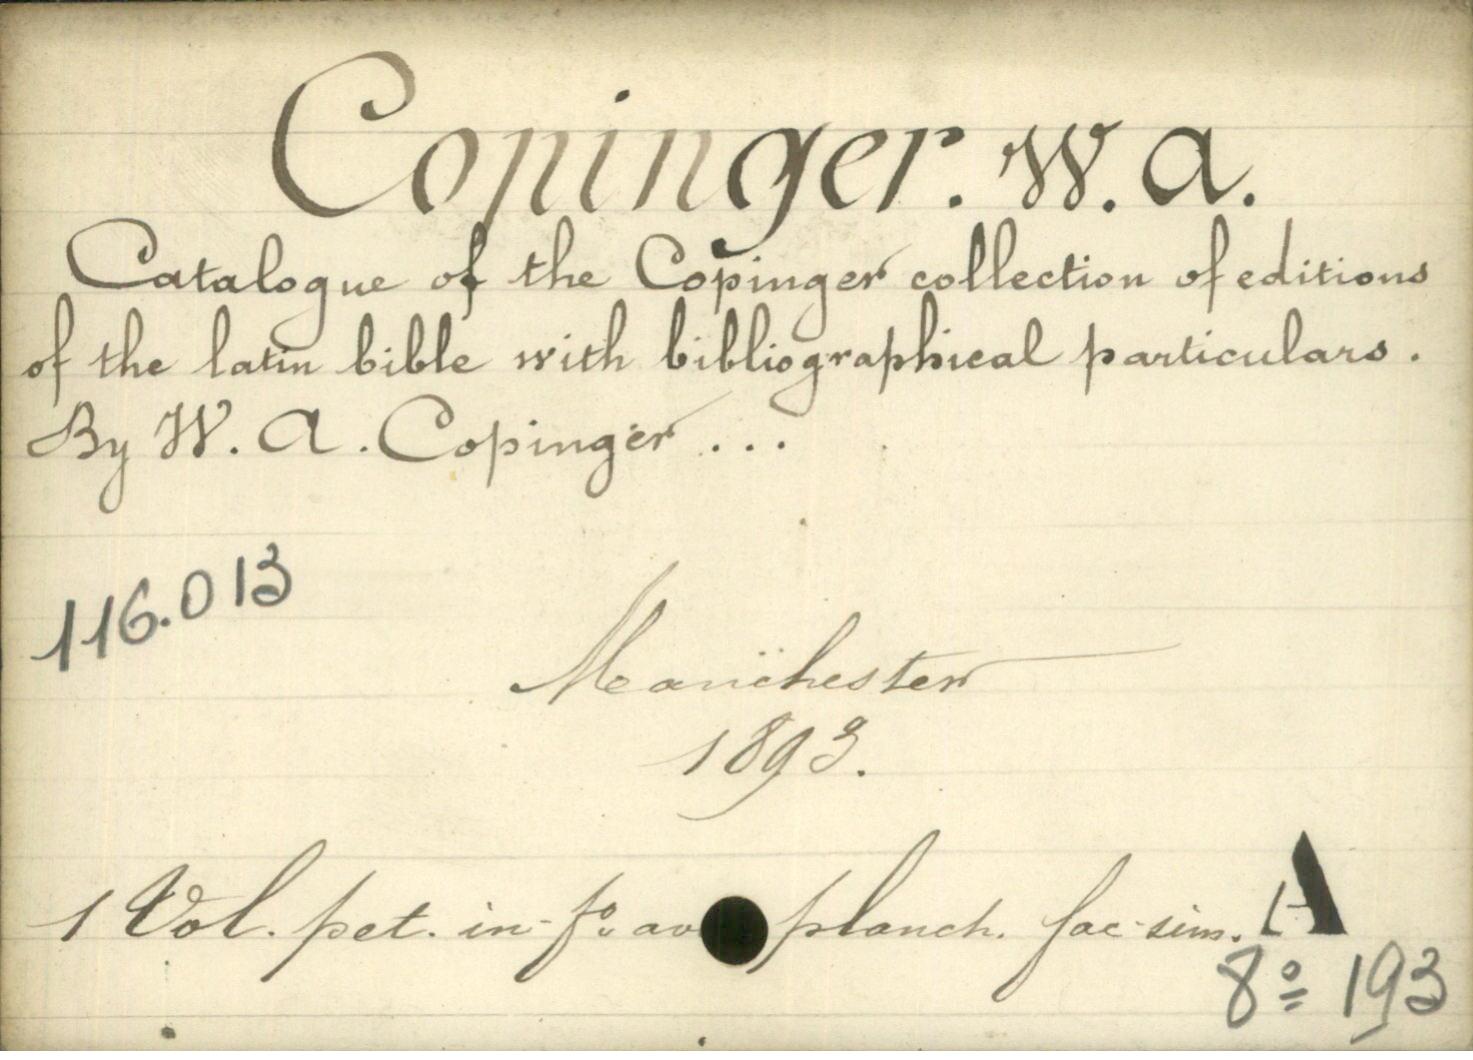 Copinger. W. A.
Catalogue of the Copinger collection of editions
of the latin bible with bibliographical particulars.
By W. A. Copinger ...
116.013
Manchester
1893.
1 Vol. pet. in-fo. av planch. fac-sim. A
8º 193